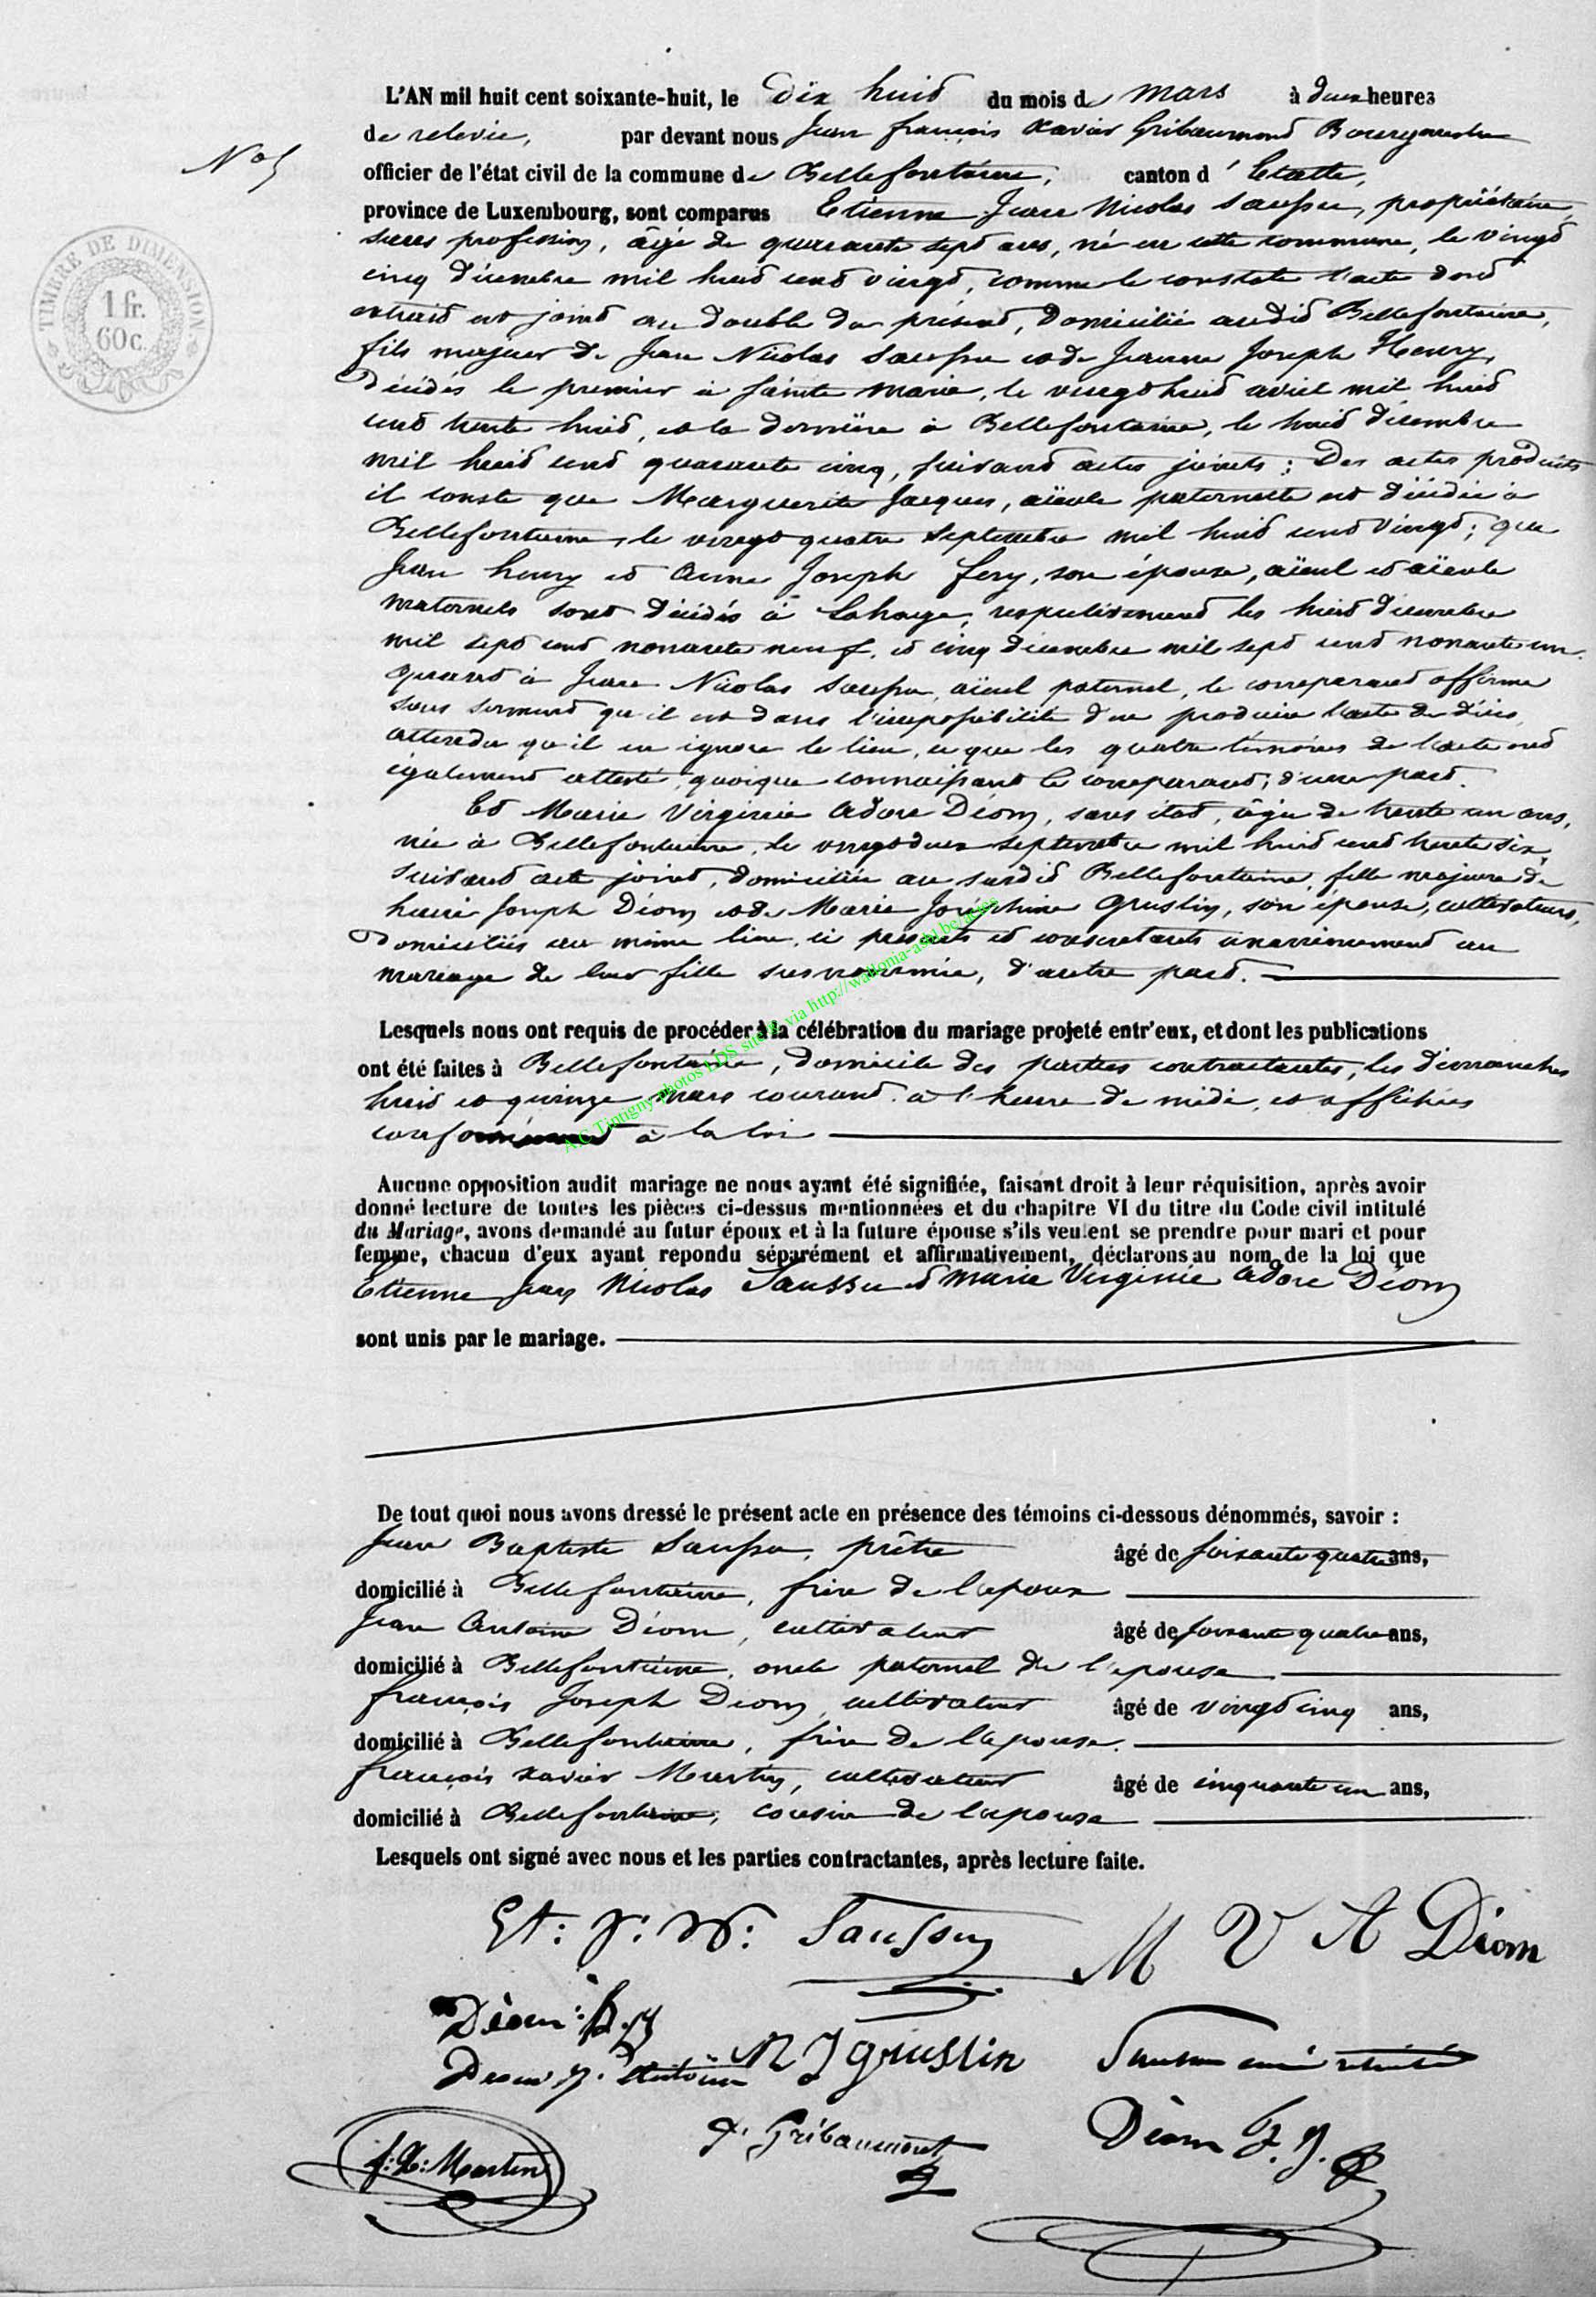 L'AN mil huit cent soixante-huit, le dix huit du mois de mars à deux heures
de relevée, par devant nous Jean françois Xavier Gribaumont Bourgmestre
officier de l'état civil de la commune de Bellefontaine, canton d'Etalle,
province de Luxembourg, sont comparus Etienne Jean Nicolas Saussu, propriétaire,
sans profession, âgé de quarante sept ans, né en cette commune, le vingt
cinq décembre mil huit cent vingt, comme le constate l'acte dont
extrait est joint au double du présent, domicilié audit Bellefontaine,
fils majeur de Jean Nicolas Saussu et de Jeanne Joseph Henry,
décédés le premier à Sainte Marie, le vingt huit avril mil huit
cent trente huit, et la dernière à Bellefontaine, le huit décembre
mil huit cent quarante cinq, suivant actes joints ; Des actes produits
il conste que Marguerite Jacques, aïeule paternelle est décédée à
Bellefontaine, le vingt quatre septembre mil huit cent vingt ; que
Jean henry et Anne Joseph fery, son épouse, aïeul et aïeule
maternels sont décédés à Lahage, respectivement les huit décembre
mil sept cent nonante neuf, et cinq décembre mil sept cent nonante un.
quant à Jean Nicolas Saussu, aïeul paternel, le comparant affirme
sous serment qu'il est dans l'impossibilité d'en produire l'acte de décès,
attendu qu'il en ignore le lieu, ce que les quatre témoins de l'acte ont
également attesté, quoique connaissant le comparant, d'une part.
Et Marie Virginie Adore Déom, sans état, âgée de trente un ans,
née à Bellefontaine, le vingt deux septembre mil huit cent trente six,
suivant acte joint, domiciliée au susdit Bellefontaine, fille majeure de
henri Joseph Déom et de Marie Joséphine Gruslin, son épouse, cultivateurs,
domiciliés au même lieu, ci présents et consentants unanimement au
mariage de leur fille susnommée, d'autre part.
Lesquels nous ont requis de procéder à la célébration du mariage projeté entr'eux, et dont les publications
ont été faites à Bellefontaine, domicile des parties contractantes, les dimanches
huit et quinze mars courant à l'heure de midi, et affichées
conformément à la loi
Aucune opposition audit mariage ne nous ayant été signifiée, faisant droit à leur réquisition, après avoir
donné lecture de toutes les pièces ci-dessus mentionnées et du chapitre VI du titre du Code civil intitulé
du Mariage, avons demandé au futur époux et à la future épouse s'ils veulent se prendre pour mari et pour
femme, chacun d'eux ayant repondu séparément et affirmativement, déclarons au nom de la loi que
Etienne Jean Nicolas Saussu et Marie Virginie Adore Déom
sont unis par le mariage.
De tout quoi nous avons dressé le présent acte en présence des témoins ci-dessous dénommés, savoir :
Jean Baptiste Saussu, prêtre âgé de soixante quatre ans,
domicilié à Bellefontaine, frère de l'époux
Jean Antoine Déom, cultivateur âgé de soixante quatre ans,
domicilié à Bellefontaine, oncle paternel de l'épouse
françois Joseph Déom, cultivateur âgé de vingt cinq ans,
domicilié à Bellefontaine, frère de l'épouse.
françois Xavier Martin, cultivateur âgé de cinquante un ans,
domicilié à Bellefontaine, cousin de l'épouse
Lesquels ont signé avec nous et les parties contractantes, après lecture faite.
Et: J: N: Saussu M V A Déom
Déom: h. J
M J gruslin Saussu curé retraité
Deom J. Antoine
J. Gribaumont Déom F. J.
f: X: Martin
N° 5
TIMBRE DE DIMENSION
1 fr.
60 c.
A.C Tintigny photos LDS site & via http://wallonia-asbl.be/actes